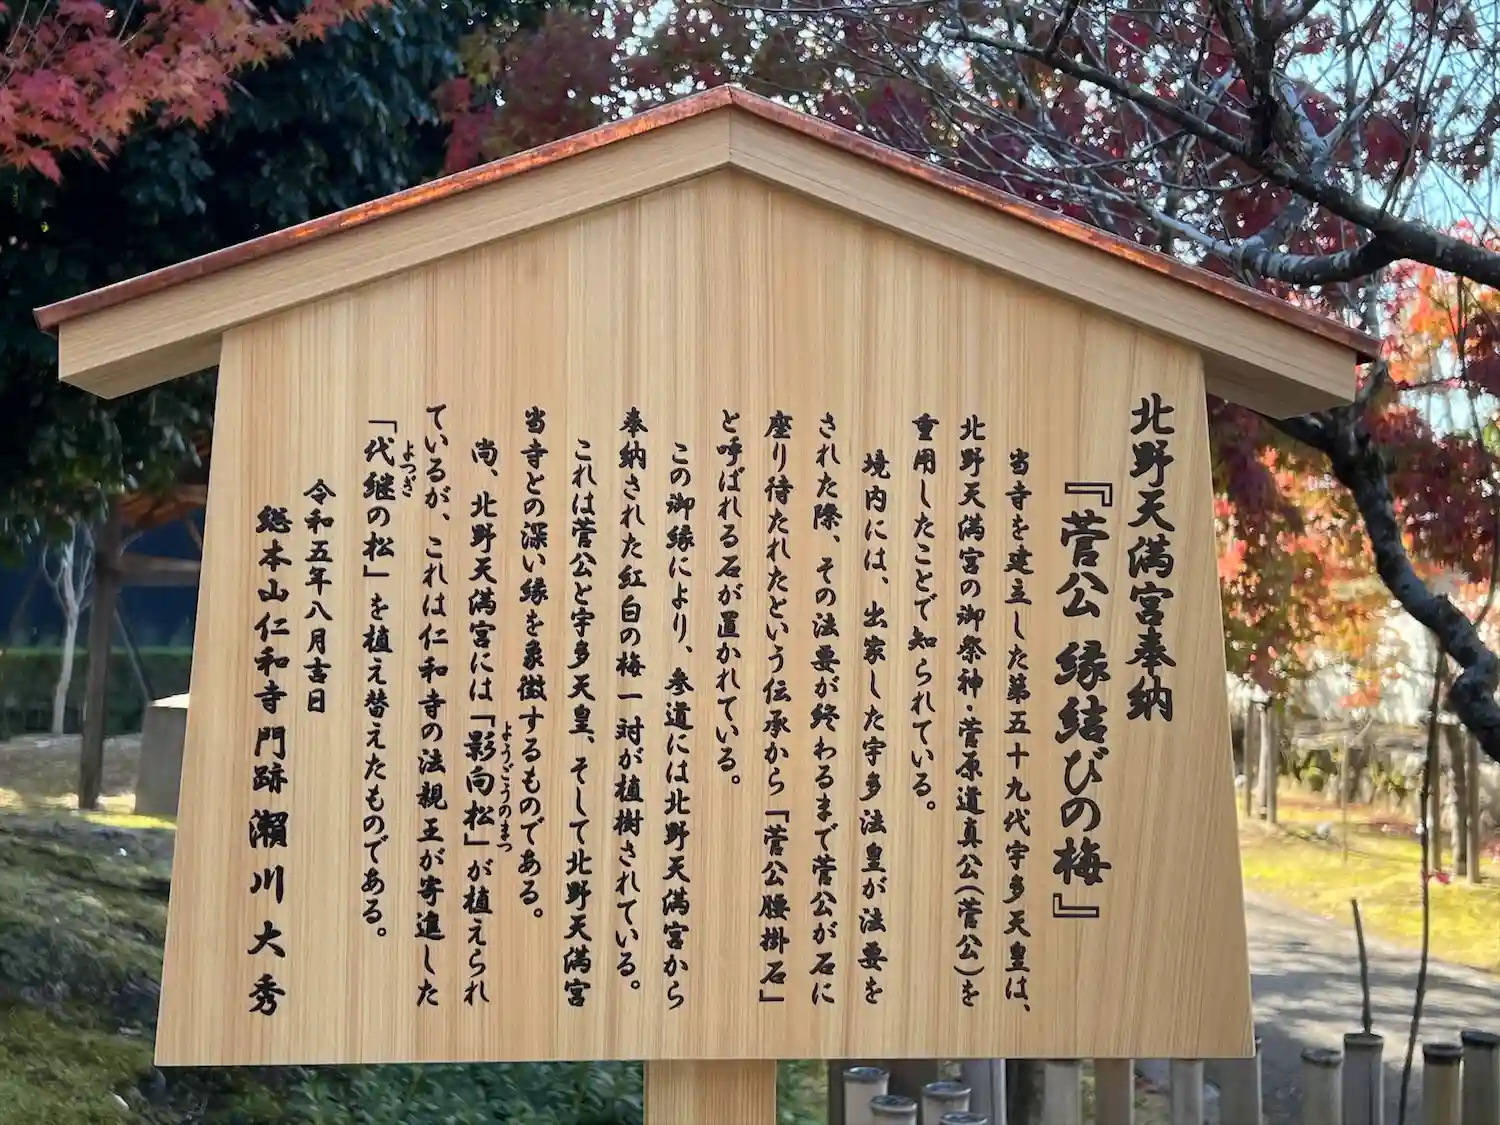 北野天満宮奉納
『菅公 縁結びの梅』
当寺を建立した第五十九代宇多天皇は、
北野天満宮の御祭神・菅原道真公(菅公)を
重用したことで知られている。
境内には、出家した宇多法皇が法要を
された際、その法要が終わるまで菅公が石に
座り待たれたという伝承から「菅公腰掛石」
と呼ばれる石が置かれている。
この御縁により、参道には北野天満宮から
奉納された紅白の梅一対が植樹されている。
これは菅公と宇多天皇、そして北野天満宮
当寺との深い縁を象徴するものである。
尚、北野天満宮には「影向松」が植えられ
ようごうのまつ
ているが、これは仁和寺の法親王が寄進した
「代継の松」を植え替えたものである。
よつぎ
令和五年八月吉日
総本山仁和寺門跡 瀬川大秀